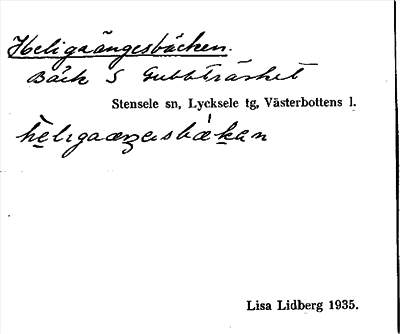 Heligaängesbäcken.
Bäck S Gubbträsket
Stensele sn, Lycksele tg, Västerbottens l.
Lisa Lidberg 1935.